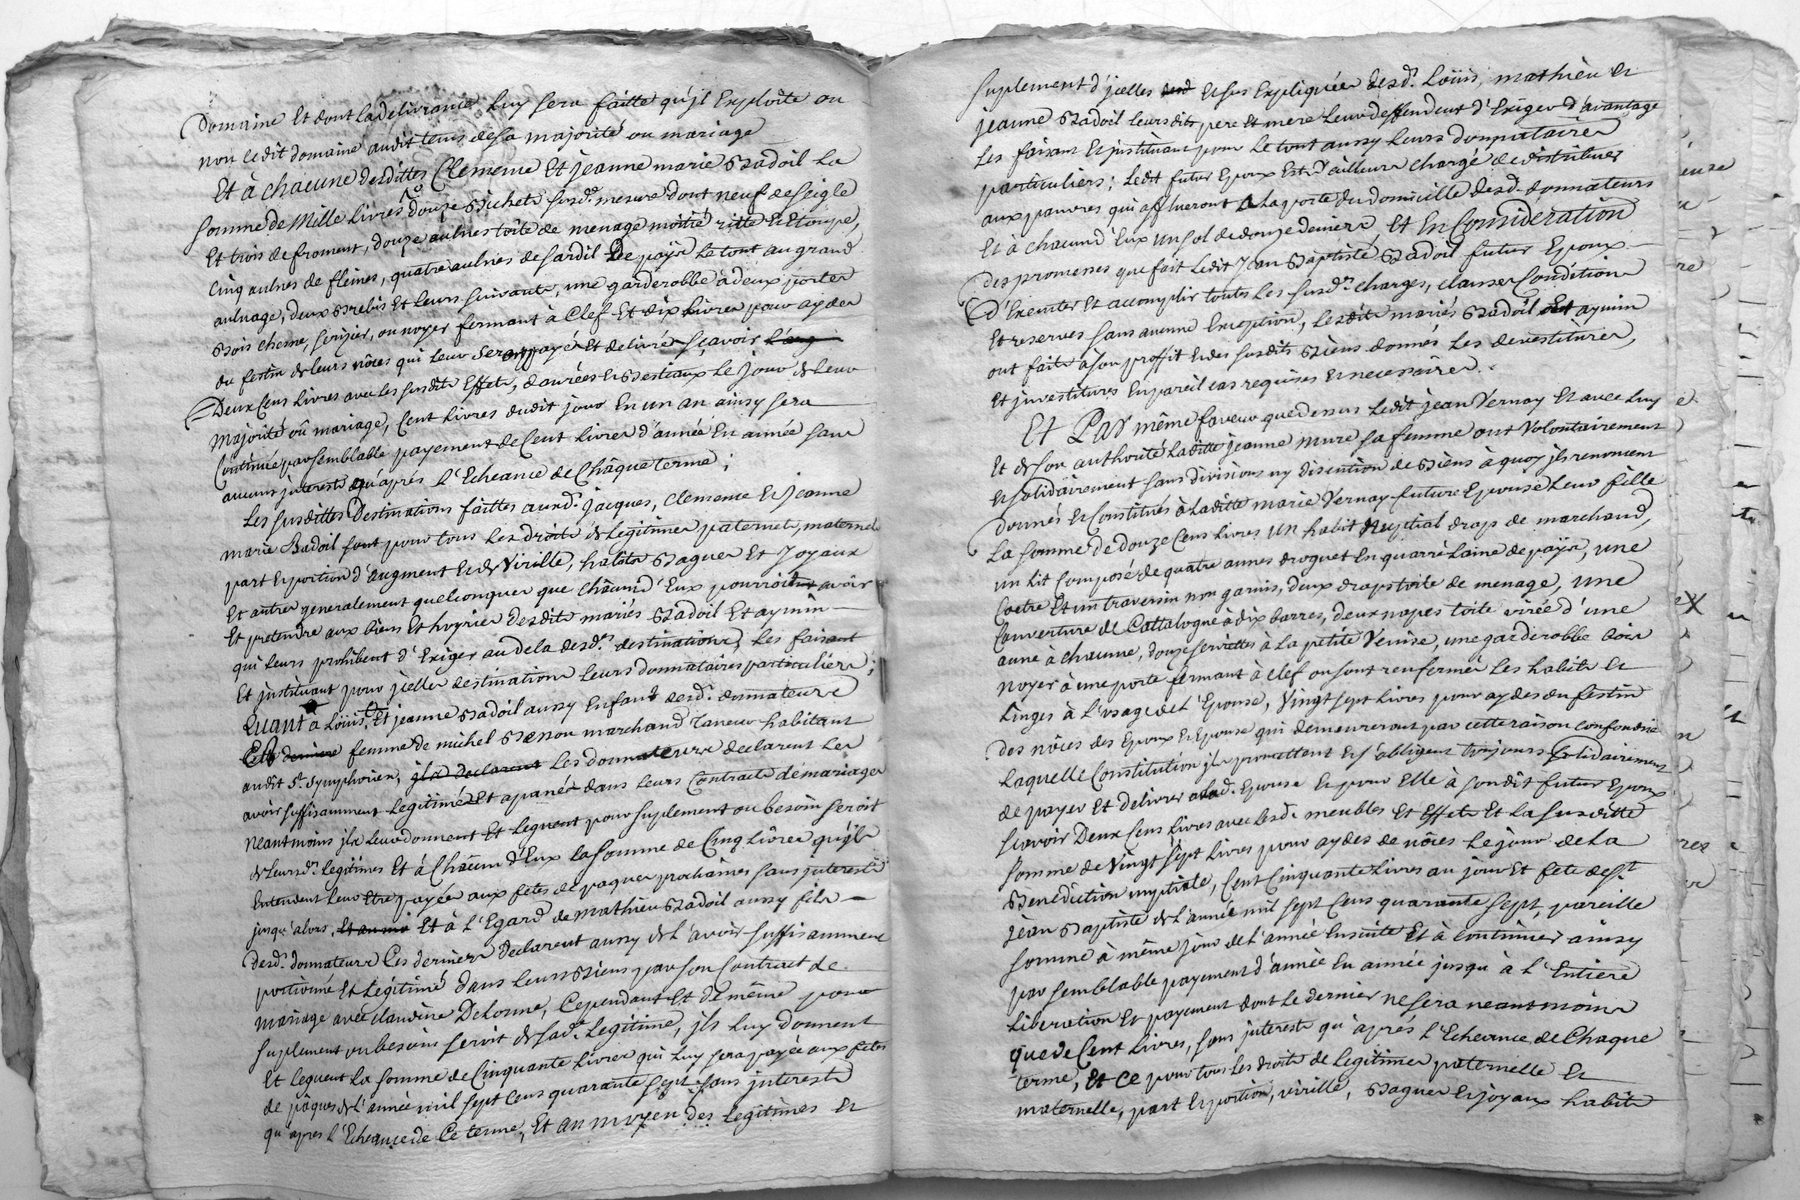 Domaine Et dont La delivrance Luy sera faitte qu'jl Exploite ou
non Ledit domaine audit tems de sa majorité ou mariage
Et à chacune desdittes Clemence Et jeanne marie Badoil La
somme de Mille Livres douze Bichets susd.e mesure dont neuf de seigle
Et trois de froment, douze aulnes toile de menage moitié ritte Et Etoupe,
Cinq aulnes de fleines, quatre aulnes de sardil De païs Le tout au grand
aulnage, deux Brebis Et Leurs suivants, une garderobbe à deux portes
Bois chesne, serizier, ou noyer fermant à Clef Et dix Livres pour ayder
du festin de Leurs nôces qui Leur sera payé Et delivré sçavoir
Deux Cens Livres avec Les susdits Effets, danrées Et Bestiaux Le jour de Leur
Majorité où mariage, Cent Livres dudit jour En un an ainsy sera
Continué par semblable payement de Cent Livres d'année En année sans
aucuns jnterests qu'après l'Echeance de Châque terme;
Les susdittes Destinations faittes auxd. jacques, Clemence Et jeanne
marie Badoil sont pour tous Les droits de Legitimes paternels, maternels
part Et portion d'augment Et de Virille, habits Bagues Et Joyaux
Et autres generalement quelconques que châcund'Eux pourroient avoir
Et pretendre aux biens Et hoyries desdits mariés Badoil Et aymin
qui Leurs prohibent d'Exiger au dela desd. destinations, Les faisant
Et jnstituant pour jcelles destinations Leurs donnataires particuliers;
Quant à Loüis, Et jeanne Badoil aussy Enfans desd. donnateurs
femme de michel Besson marchand Taneur habitant
audit S.t Symphorien, jls declarent Les donnateurs declarent Les
avoir suffisamment Legitimés Et apanés dans Leurs Contracts de mariages
Neantmoins jls Leur donnent Et Leguent pour suplement ou besoin seroit
de Leursd. Legitimes Et à Châcun d'Eux La somme de Cinq Livres qu'jls
Entendent Leur Etre payée aux fetes de paques prochaines sans jnterests
jusqu'alors, Et à l'Egard de Mathieu Badoil aussy fils
desd. donnateurs Ces derniers Declarent aussy de l'avoir suffisamment
portionné Et Legitimé dans Leurs Biens par son Contract de
mariage avec Claudine Delorme, Cependant Et de même pour
suplement ou besoin seroit de sad. Legitime, jls Luy donnent
Et Leguent La somme de Cinquante Livres qui Luy sera payée aux fetes
de pâques de l'année mil sept Cens quarante sept sans jnterests
qu'apres l'Echeance de Ce terme, Et au moyen des Legitimes Et
suplement d'jcelles Et sus Expliquées Lesd. Loüis, mathieu Et
jeanne Badoil Leursdits pere Et mere Leur deffendent d'Exiger d'avantage
Les faisant Et jnstituant pour Le tout aussy Leurs donnataires
particuliers; Ledit futur Epoux Est d'ailleurs chargé de distribuer
aux pauvres qui afflueront à La porte du domicille desd. donnateurs
Et à chacund'Eux un sol de douze deniers, Et En Consideration
Des promesses que fait Ledit Jean Baptiste Badoil futur Epoux
D'Executer Et accomplir toutes Les susd.es charges, clauses Conditions
Et reserves sans aucune Exception, Lesdits mariés Badoil Et aymin
ont fait à son proffit Et des susdits Biens donnés Les devestitures,
Et jnvestitures En pareil cas requises Et necessaires.
Et Par même faveur que dessus Ledit jean Vernay Et avec Luy
Et de son authorité Laditte jeanne Mure sa femme ont Volontairement
Et solidairement sans division ny discution de Biens à quoy jls renoncent
Donnés Et Constitués à Laditte marie Vernay future Epouse Leur fille
La somme de douze Cens Livres un habit Nuptial drap de marchand,
un Lit Composé de quatre aunes droguet En quarré Laine de païs, une
Coetre Et un traversin non garnis, deux draps toile de menage, une
Couverture de Cattalogne à dix barres, deux napes toile virée d'une
aune à chacune, douze serviettes à La petite Venise, une garderobbe bois
noyer à une porte fermant à clef ou sont renfermés Les habits Et
Linges à L'usage de L'Epouse, Vingt sept Livres pour aydes du festin
des nôces des Epoux Et Epouse qui demeureront par cette raison Confondües
Laquelle Constitution jls promettent Et s'obligent toujours solidairement
de payer Et delivrer alad. Epouse Et pour Elle à sondit futur Epoux
Sçavoir Deux Cens Livres avec Lesd. meubles Et Effets Et La susditte
somme de Vingt sept Livres pour aydes de nôces Le jour de La
Benediction nuptiale, Cent Cinquante Livres au jour Et fete de S.t
jean Baptiste de l'année mil sept Cens quarante sept, pareille
somme à même jour de l'année Ensuite Et à Continuer ainsy
par semblable payement d'année En année jusqu'à l'Entiere
Liberation Et payement dont Le dernier ne sera neantmoins
que de Cent Livres, sans jnterests qu'après l'Echeance de Chaque
terme, Et Ce pour tous Les droits de Legitimes paternelle Et
maternelle, part Et portion, virille, Bagues Et joyaux habits